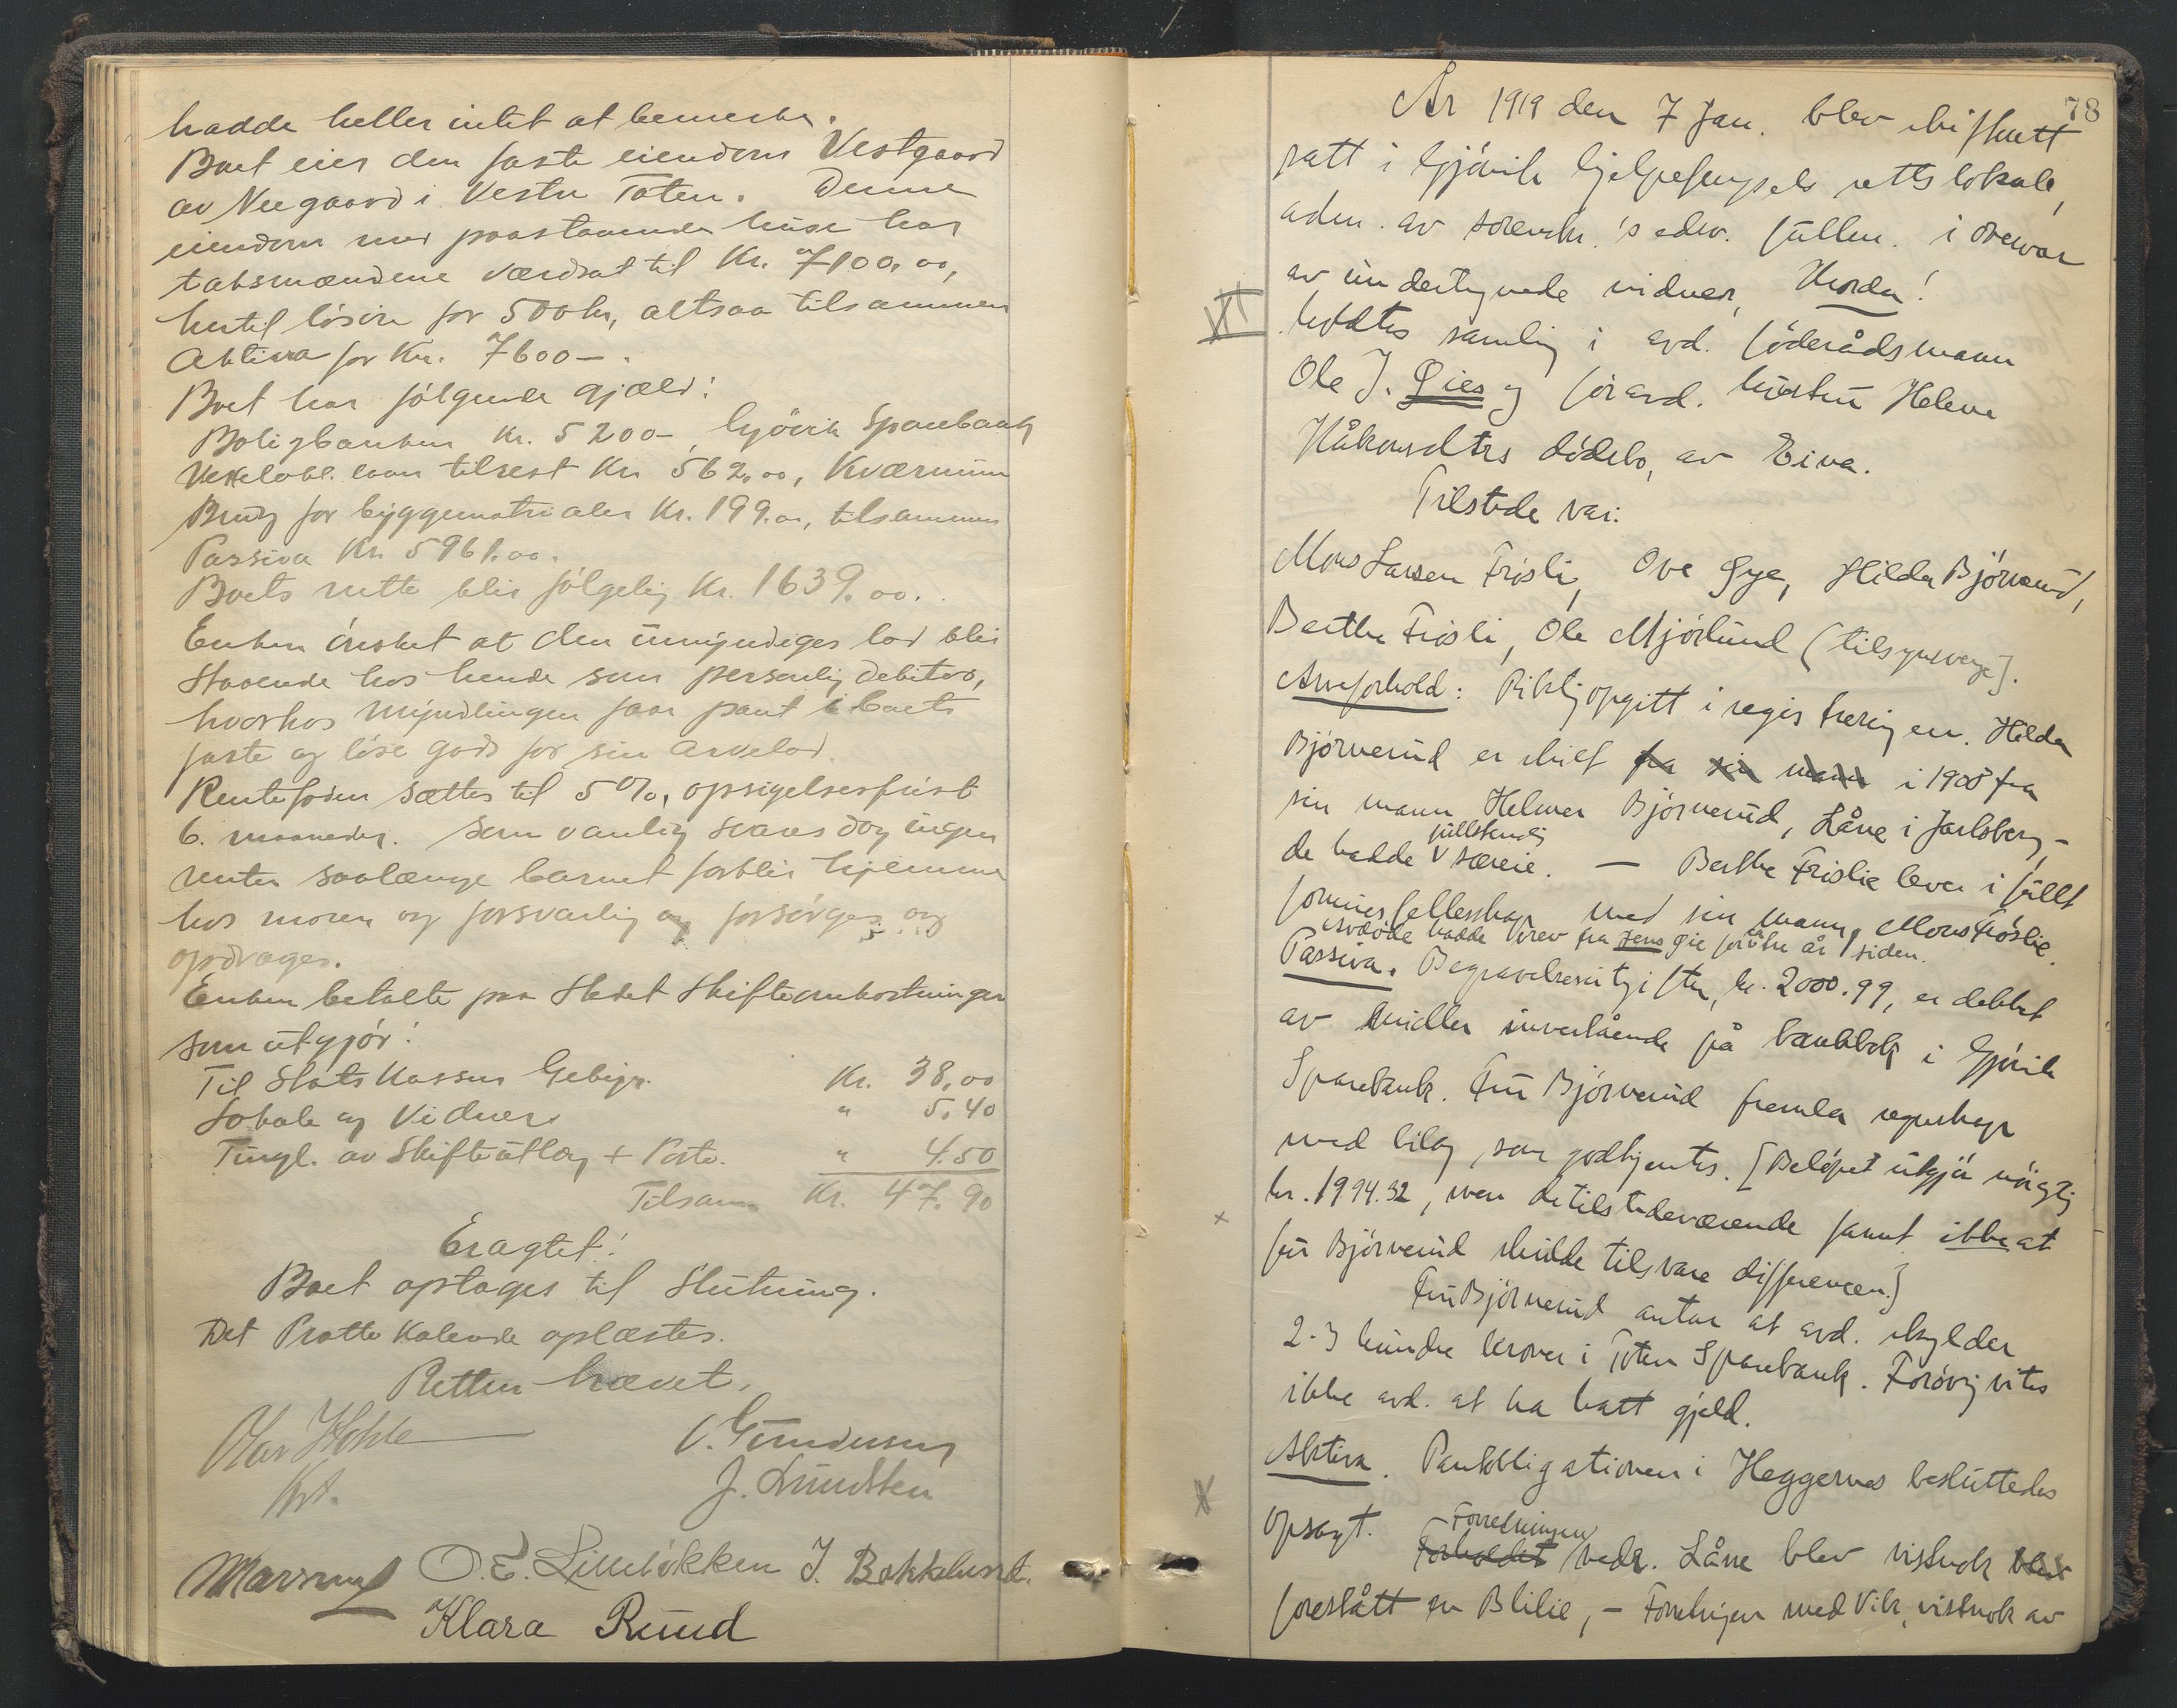 hadde heller intet at bemerke.
Boet eier den faste eiendom Vestgaard
av Neegaard i Vestre Toten. Denne
eiendom med paastaaende huse har
takstmændene værdsat til Kr. 7100,00,
hertil løsøre for 500 kr, altsaa tilsammen
Aktiva for Kr. 7600—.
Boet har følgende gjæld:
Boligbanken Kr. 5200—, Gjøvik Sparebank
Vexelobl. laan tilrest Kr 562,00, Kværnum
Brug for byggematrialer Kr. 199.00, tilsammen
Passiva Kr. 5961.00.
Boets netto blir følgelig Kr. 1639.00.
Enken ønsket at den umyndiges lod blir
staaende hos hende som personlig debitor,
hvorhos myndlingen faar pant i boets
faste og løse gods for sin arvelod.
Rentefoden sættes til 5%, opsigelsesfrist
6. maaneder. Som vanlig svares dog ingen
renter saalænge barnet forblir hjemme
hos moren og forsvarlig forsørges og
opdrages.
Enken betalte paa Stedet Skifteomkostninger
som utgjør:
Til Statskassen Gebyr. Kr. 38,00
Lokale og Vidner " 5.40
Tingl. av Skifteutlæg + Porto. " 4.50
Tilsam. Kr. 47.90
Eragtet!
Boet optages til Slutning.
Det Protokolerede oplæstes.
Retten hævet.
Olav Hohle V. Gundersen
Kst. J. Lundsten
O. E. Limløkken J. Bakkelund.
Klara Ruud
78
År 1919 den 7 Jan. blev skifterett
satt i Gjøvik hjelpefengsels rettslokale,
adm. av sorenskr.'s edsv. fullm. i overvær
av undertegnede vidner, Hvorda!
VII
holdtes samling i avd. föderådsmann
Ole J. Gies og foravd. hustru Helene
Håkonsdtrs dödsbo, av Eina.
Tilstede var:
Mons Larsen Frisli, Ove Gye, Hilda Björnerud,
Berthe Frisli, Ole Mjörlund (tilsynsverge).
Arveforhold: Riktig opgitt i registreringen. Hilda
Björnerud er skilt fra sin mann i 1908 fra
sin mann Helmer Björnerud, Låne i Jarlsberg,–
fullstendig
de hadde V særeie. — Berthe Frislie lever i fullt
formuesfellesskap med sin mann, Mons Frislie.
hadde brev fra Jens Gie for otte år siden.
Passiva. Begravelsesutgifter, kr. 2000.99, er dekket
av midler innestående på bankbok i Gjøvik
Sparebank. Fru Björnerud fremla regnskap
med bilag, som godkjentes. [Belöpet utgjör nöiagtig
kr. 1994.32, men de tilstedeværende fant ikke at
fru Björnerud skulde tilsvare differencen.]
Fru Björnerud antar at avd. skylder
2-3 hundre kroner i Toten Sparebank. Forövrig vites
ikke avd. at ha hatt gjeld.
Aktiva. Pantobligationen i Heggernes besluttedes
opsagt. Forretningen
Forholdet vedr. Låne blev vistnok blev
forestått av Blilie, – Forretningen med Vik, vistnok av